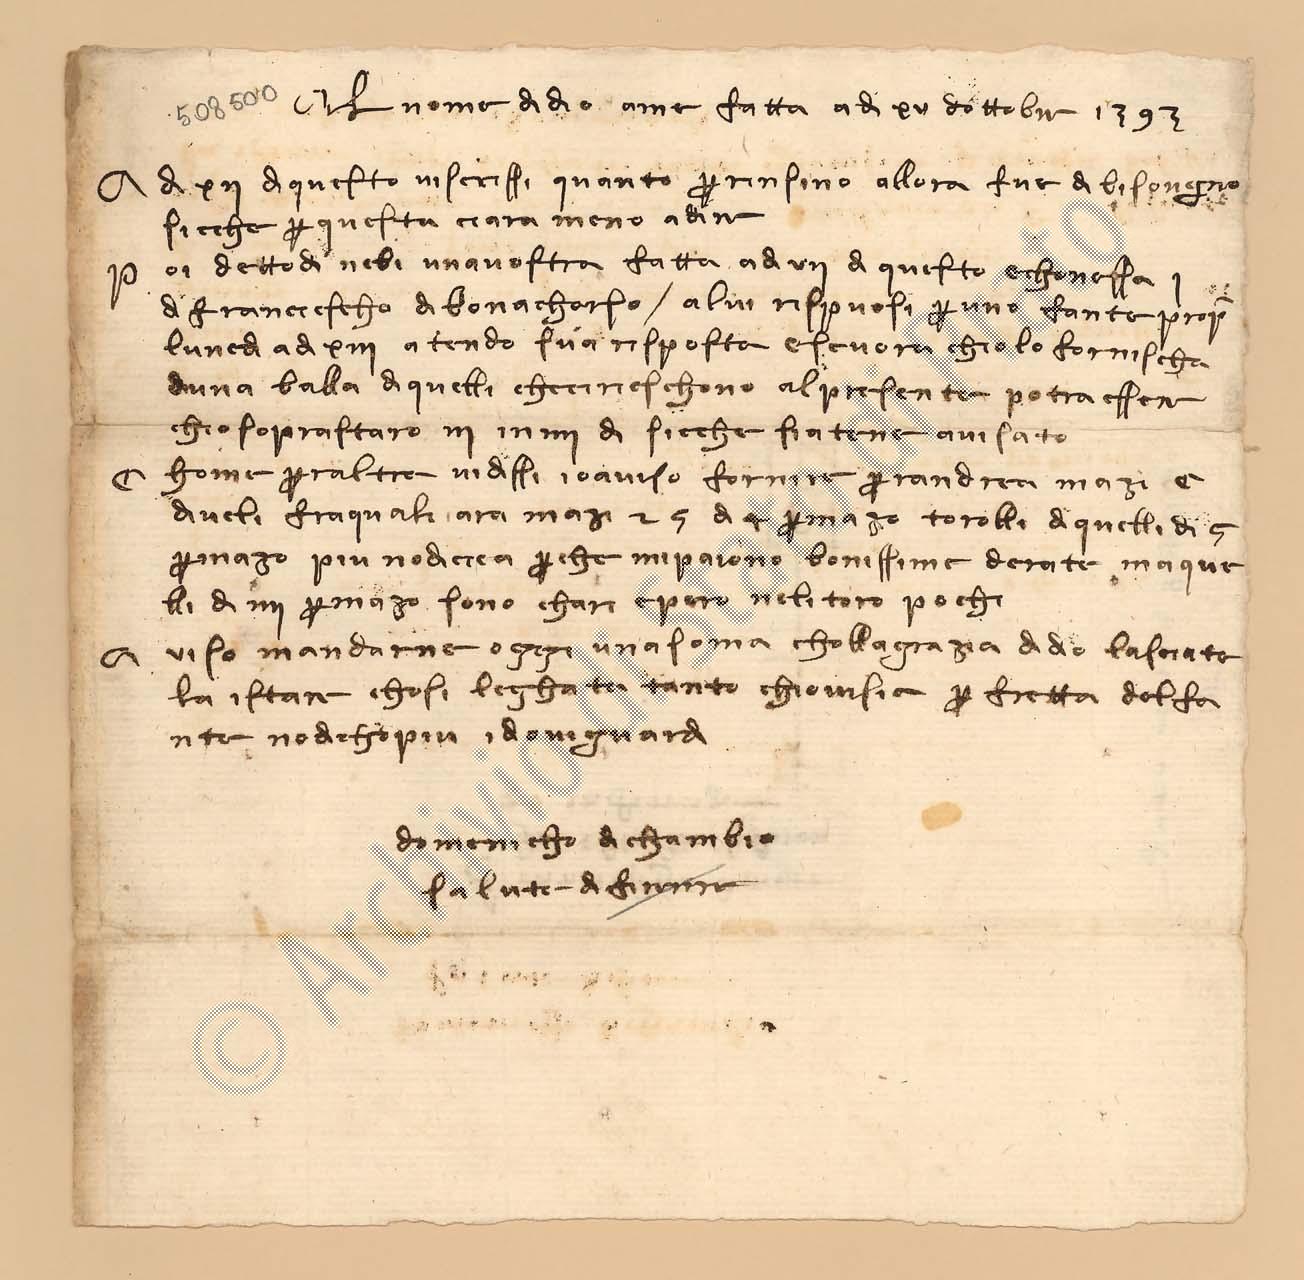 508500
Al nome di dio ame fatta adi xv dottobre 1393
A di xii di questo viscrissi quanto per rinsino allora fue di bisongno
sicche per questa ciara meno adire
P oi detto di nebi una vostra fatta adi vii di questo echonessa 1
di francescho di bonachorso / a lui rispuosi per uno fante propi
lunedi adi xiii atendo sua risposta e se vora chio lo fornischa
duna balla di quelli checi rieschono al presente potra essere
chio soprastaro iii in iiii di sicche siatene avisato
C home per altre vidissi io aviso fornire per andrea mazi e
diveli fra quali ara mazi 25 di 4 per mazo torolli di quelli di 5
per mazo piu no di cica per che mi paiono bonissime derate ma que
lli di iiii per mazo sono chari e pero neli toro pochi
A viso mandarne oggi una soma cholla grazia di dio lasciate
la istare chosi leghata tanto chio vi sia per fretta del fa
nte no dicho piu idio vi guardi
domenicho di chambio
salute di firenze
© Archivio di Stato di Prato